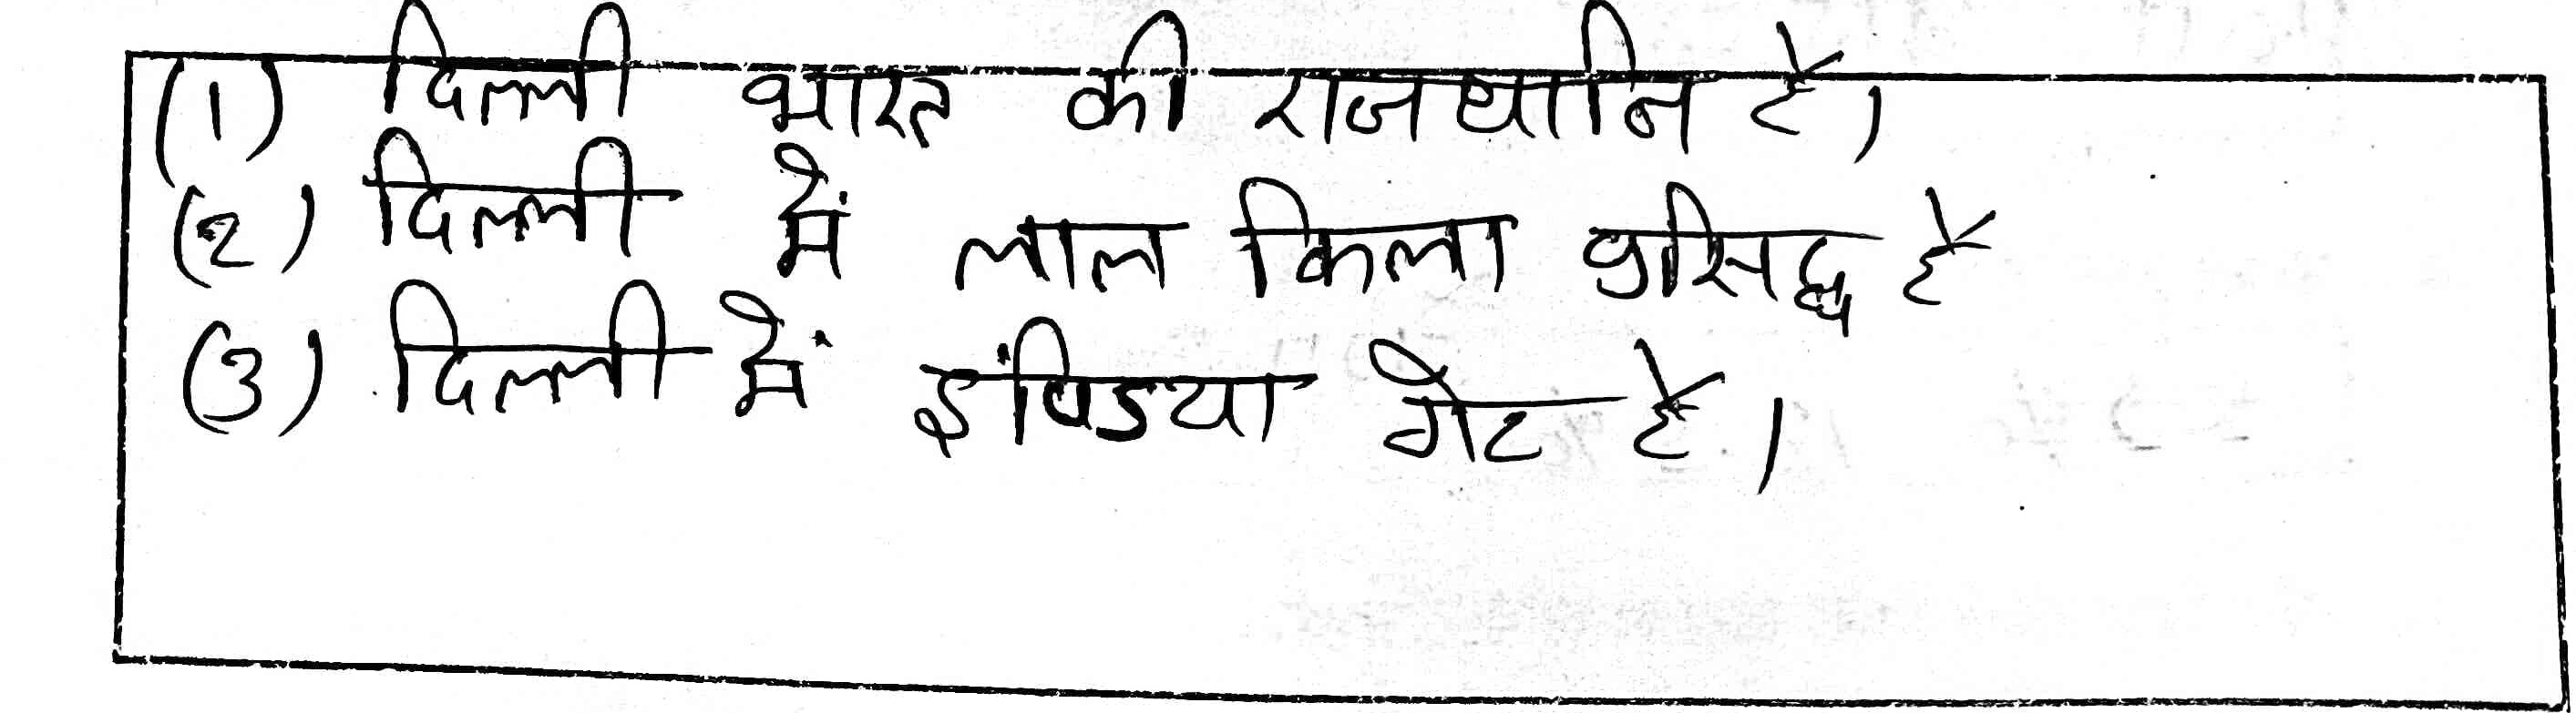 (1) दिल्ली भारत की राजधानि है।
(2) दिल्ली में लाल किला प्रसिद्ध है
(3) दिल्ली में इंण्डिया गेट है।